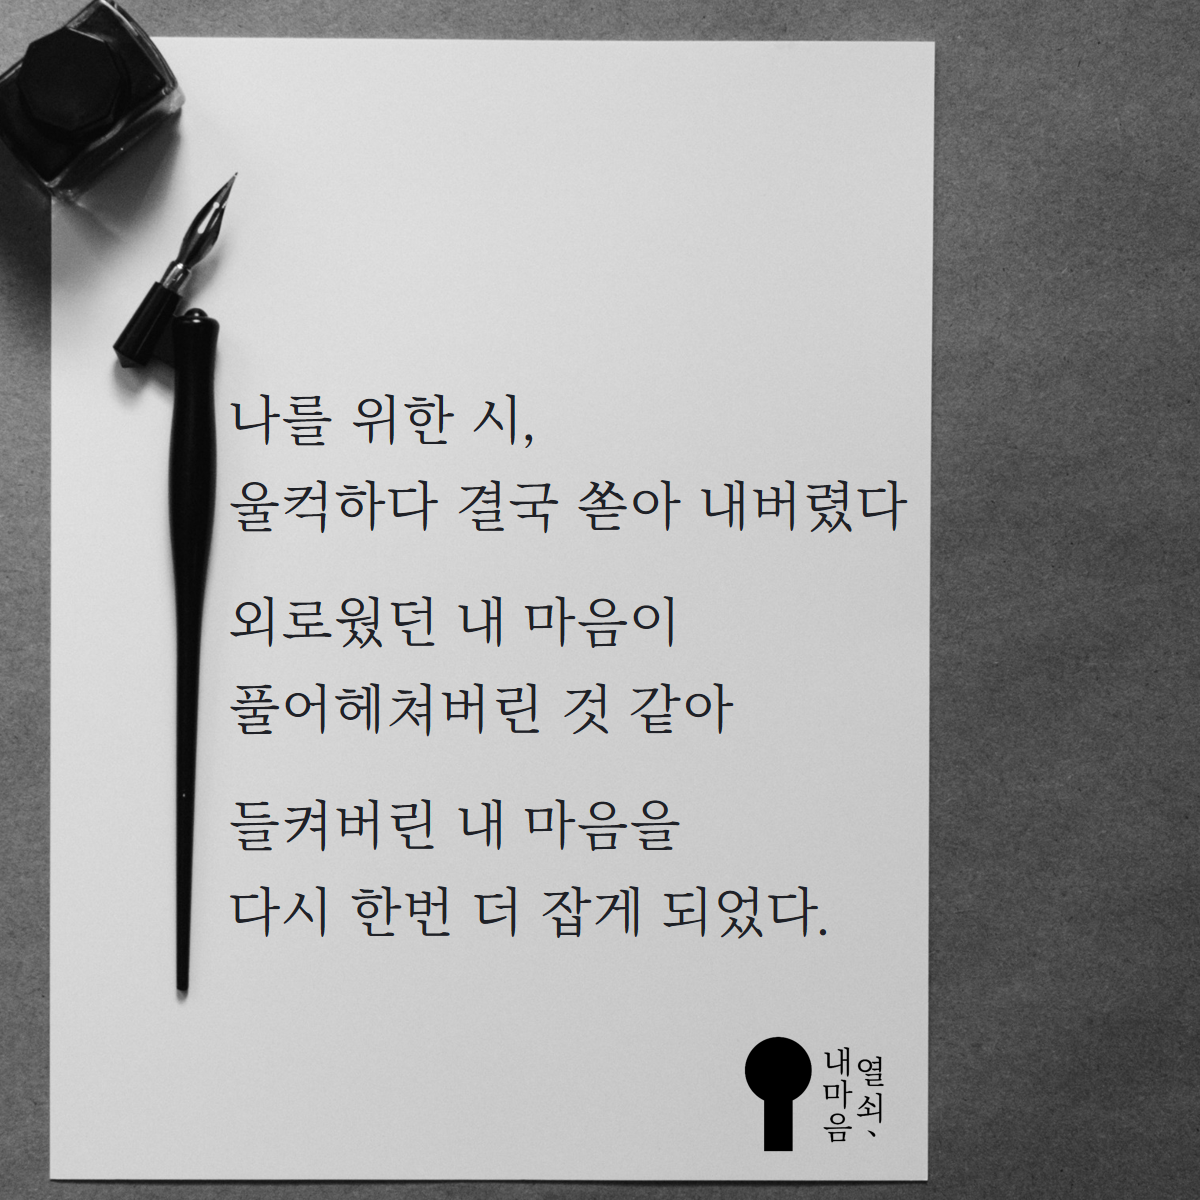 나를 위한 시,
울컥하다 결국 쏟아 내버렸다
외로웠던 내 마음이
풀어헤쳐버린 것 같아
들켜버린 내 마음을
다시 한번 더 잡게 되었다.
열쇠,
내마음